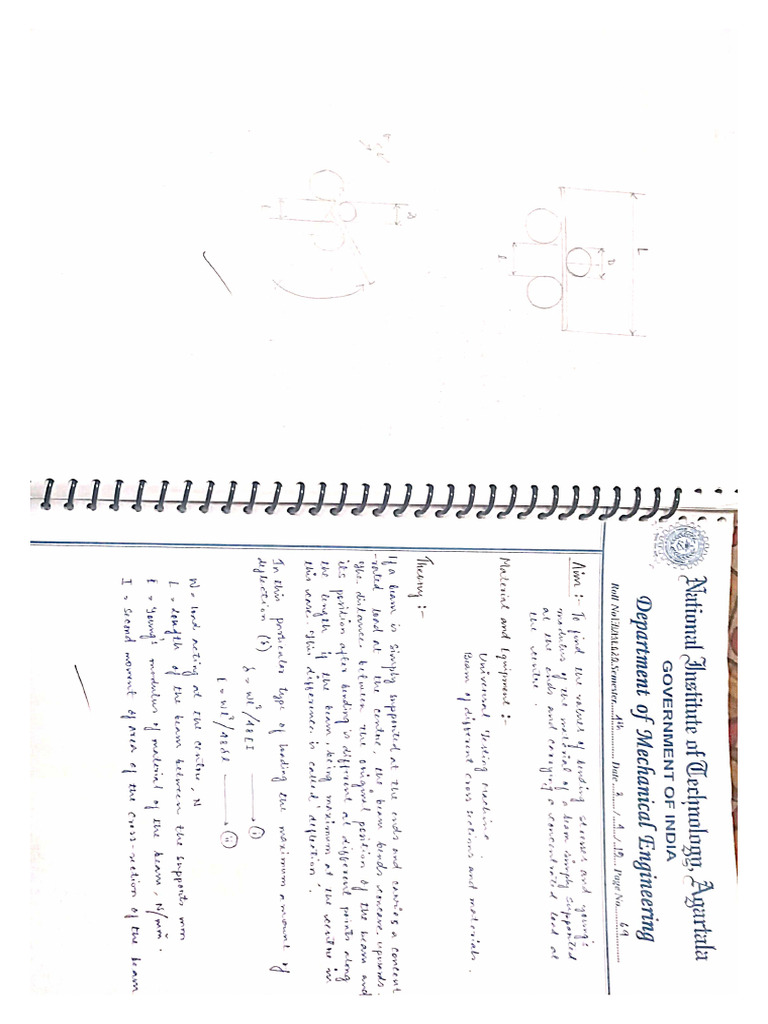 National Institute of Technology, Agartala
GOVERNMENT OF INDIA
Department of Mechanical Engineering
Semester 4th Date 2/4/19 Page No. 69
Aim :- To find the values of bending stresses and young's
modulus of the material of a beam simply supported
at the ends and carrying a concentrated load at
the centre.
Material and Equipment :-
Universal Testing Machine.
Beam of different cross sections and materials.
Theory :-
If a beam is simply supported at the ends and carries a concent
-rated load at the center, the beam bends concave upwards.
The distance between the original position of the beam and
its position after bending is different at different points along
the length of the beam, being maximum at the centre in
this case. This difference is called 'deflection'.
In this particular type of loading the maximum amount of
deflection (δ)
δ = Wl³/48EI → (i)
E = Wl³/48δI → (ii)
W = load acting at the centre, N
L = length of the beam between the supports mm
E = Young's modulus of material of the beam, N/mm².
I = second moment of area of the cross-section of the beam
L
D
l